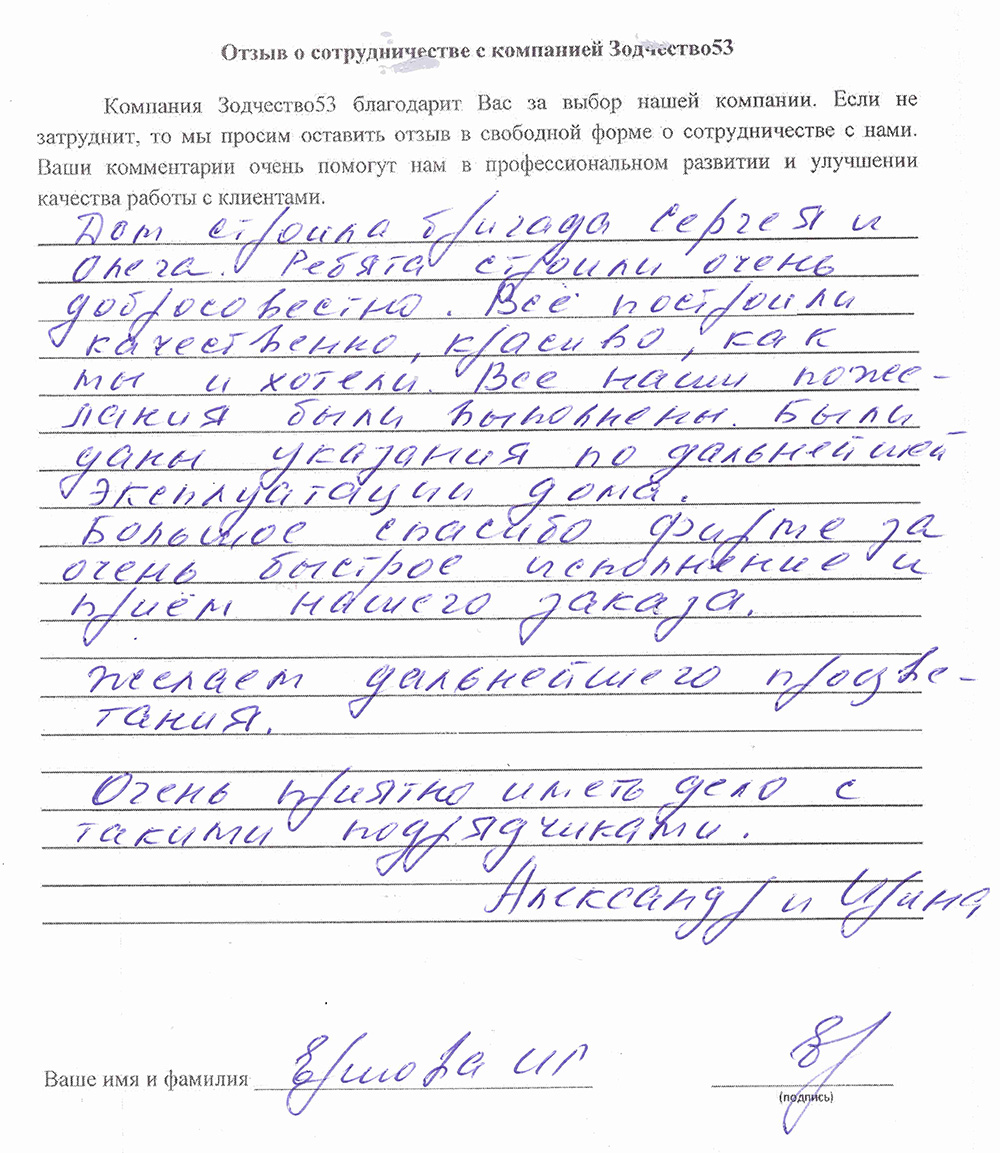 Отзыв о сотрудничестве с компанией Зодчество53
Компания Зодчество53 благодарит Вас за выбор нашей компании. Если не
затруднит, то мы просим оставить отзыв в свободной форме о сотрудничестве с нами.
Ваши комментарии очень помогут нам в профессиональном развитии и улучшении
качества работы с клиентами.
Дом строила бригада Сергея и
Олега. Ребята строили очень
добросовестно. Всё построили
качественно, красиво, как
мы и хотели. Все наши поже-
лания были выполнены. Были
даны указания по дальнейшей
эксплуатации дома.
Большое спасибо фирме за
очень быстрое исполнение и
приём нашего заказа.
Желаем дальнейшего процве-
тания.
Очень приятно иметь дело с
такими подрядчиками.
Александр и Ирина
Ваше имя и фамилия Ершова ИГ
(подпись)